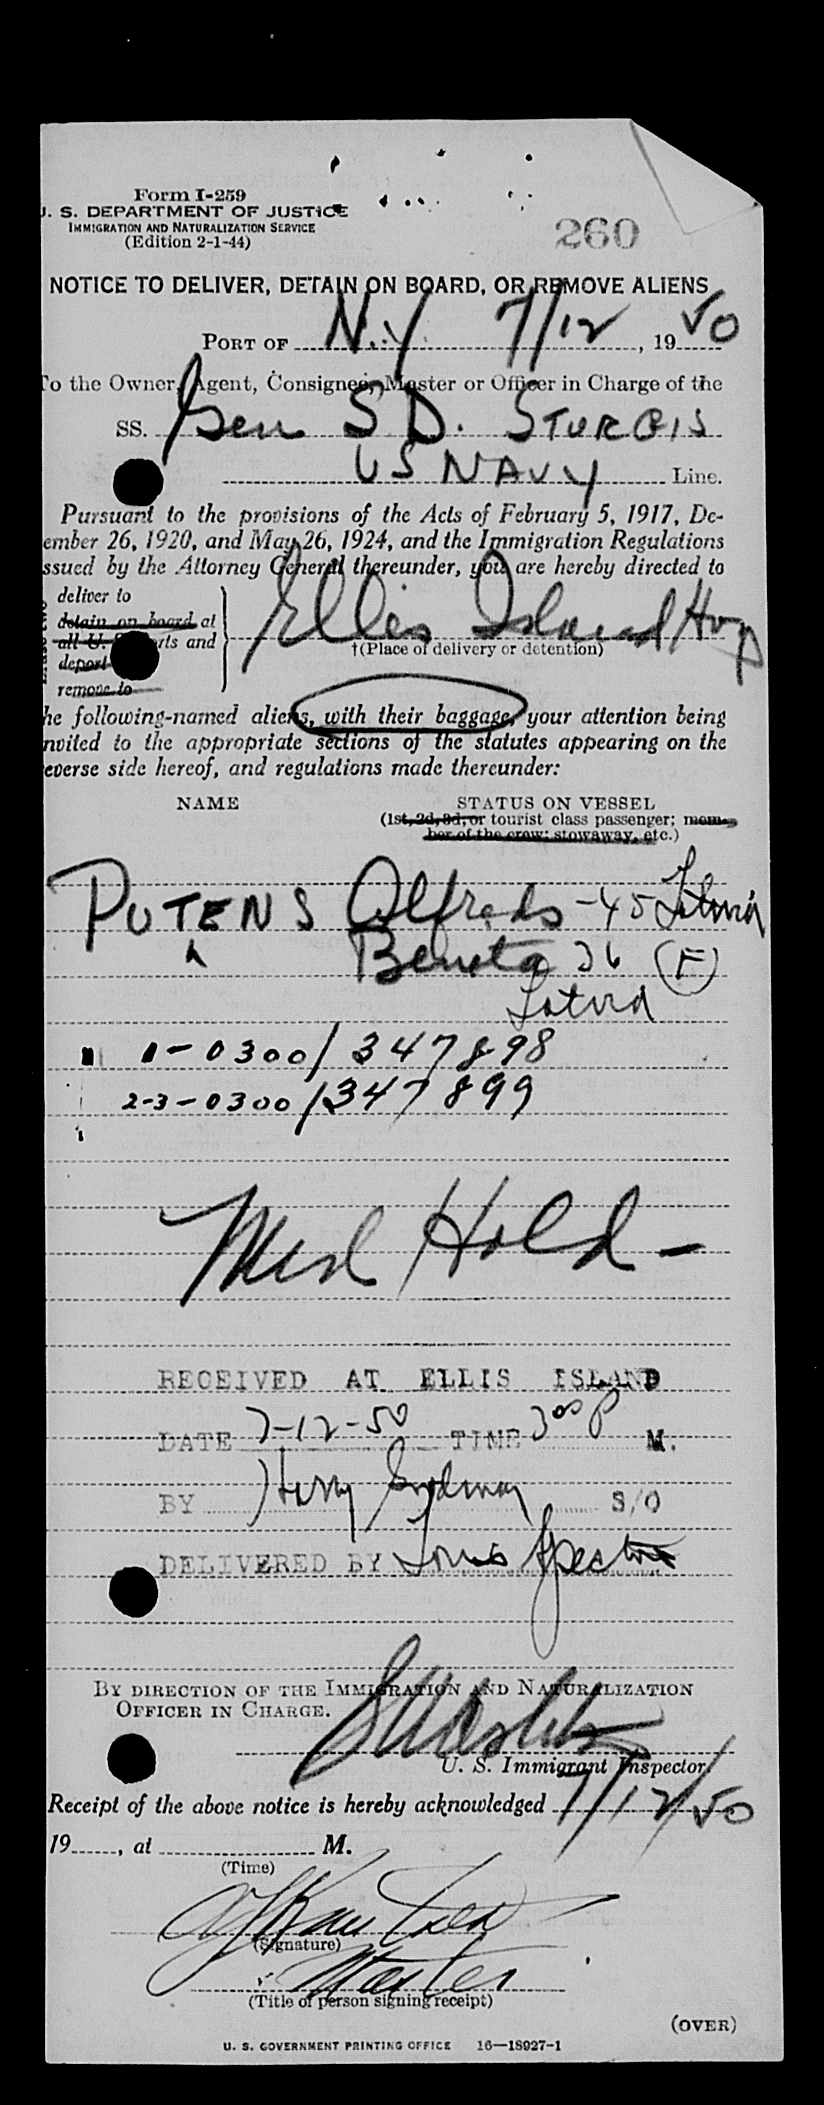 Form I-259
U. S. DEPARTMENT OF JUSTICE
IMMIGRATION AND NATURALIZATION SERVICE
(Edition 2-1-44)
260
NOTICE TO DELIVER, DETAIN ON BOARD, OR REMOVE ALIENS
PORT OF N.Y. 7/12, 1950
To the Owner, Agent, Consignee, Master or Officer in Charge of the
SS. Gen S D. STURGIS
US NAVY Line.
Pursuant to the provisions of the Acts of February 5, 1917, De-
ember 26, 1920, and May 26, 1924, and the Immigration Regulations
ssued by the Attorney General thereunder, you are hereby directed to
deliver to
detain on board at
all U. S. ports and
deport
remove to
Ellis Island Hosp
†(Place of delivery or detention)
he following-named aliens, with their baggage, your attention being
nvited to the appropriate sections of the statutes appearing on the
everse side hereof, and regulations made thereunder:
NAME STATUS ON VESSEL
(1st, 2d, 3d, or tourist class passenger; mem-
ber of the crew; stowaway, etc.)
PUTENS Alfreds - 45 Latvia
Benita 26 (F)
Latvia
1-0300/347898
2-3-0300/347899
Med Hold -
RECEIVED AT ELLIS ISLAND
DATE 7-12-50 TIME 3 00 P M.
BY Harry S/O
DELIVERED BY Louis Spector
BY DIRECTION OF THE IMMIGRATION AND NATURALIZATION
OFFICER IN CHARGE.
U. S. Immigrant Inspector
Receipt of the above notice is hereby acknowledged 7/12/50
19......, at .................... M.
(Time)
(Signature)
Master
(Title of person signing receipt)
(OVER)
U. S. GOVERNMENT PRINTING OFFICE 16—18927-1